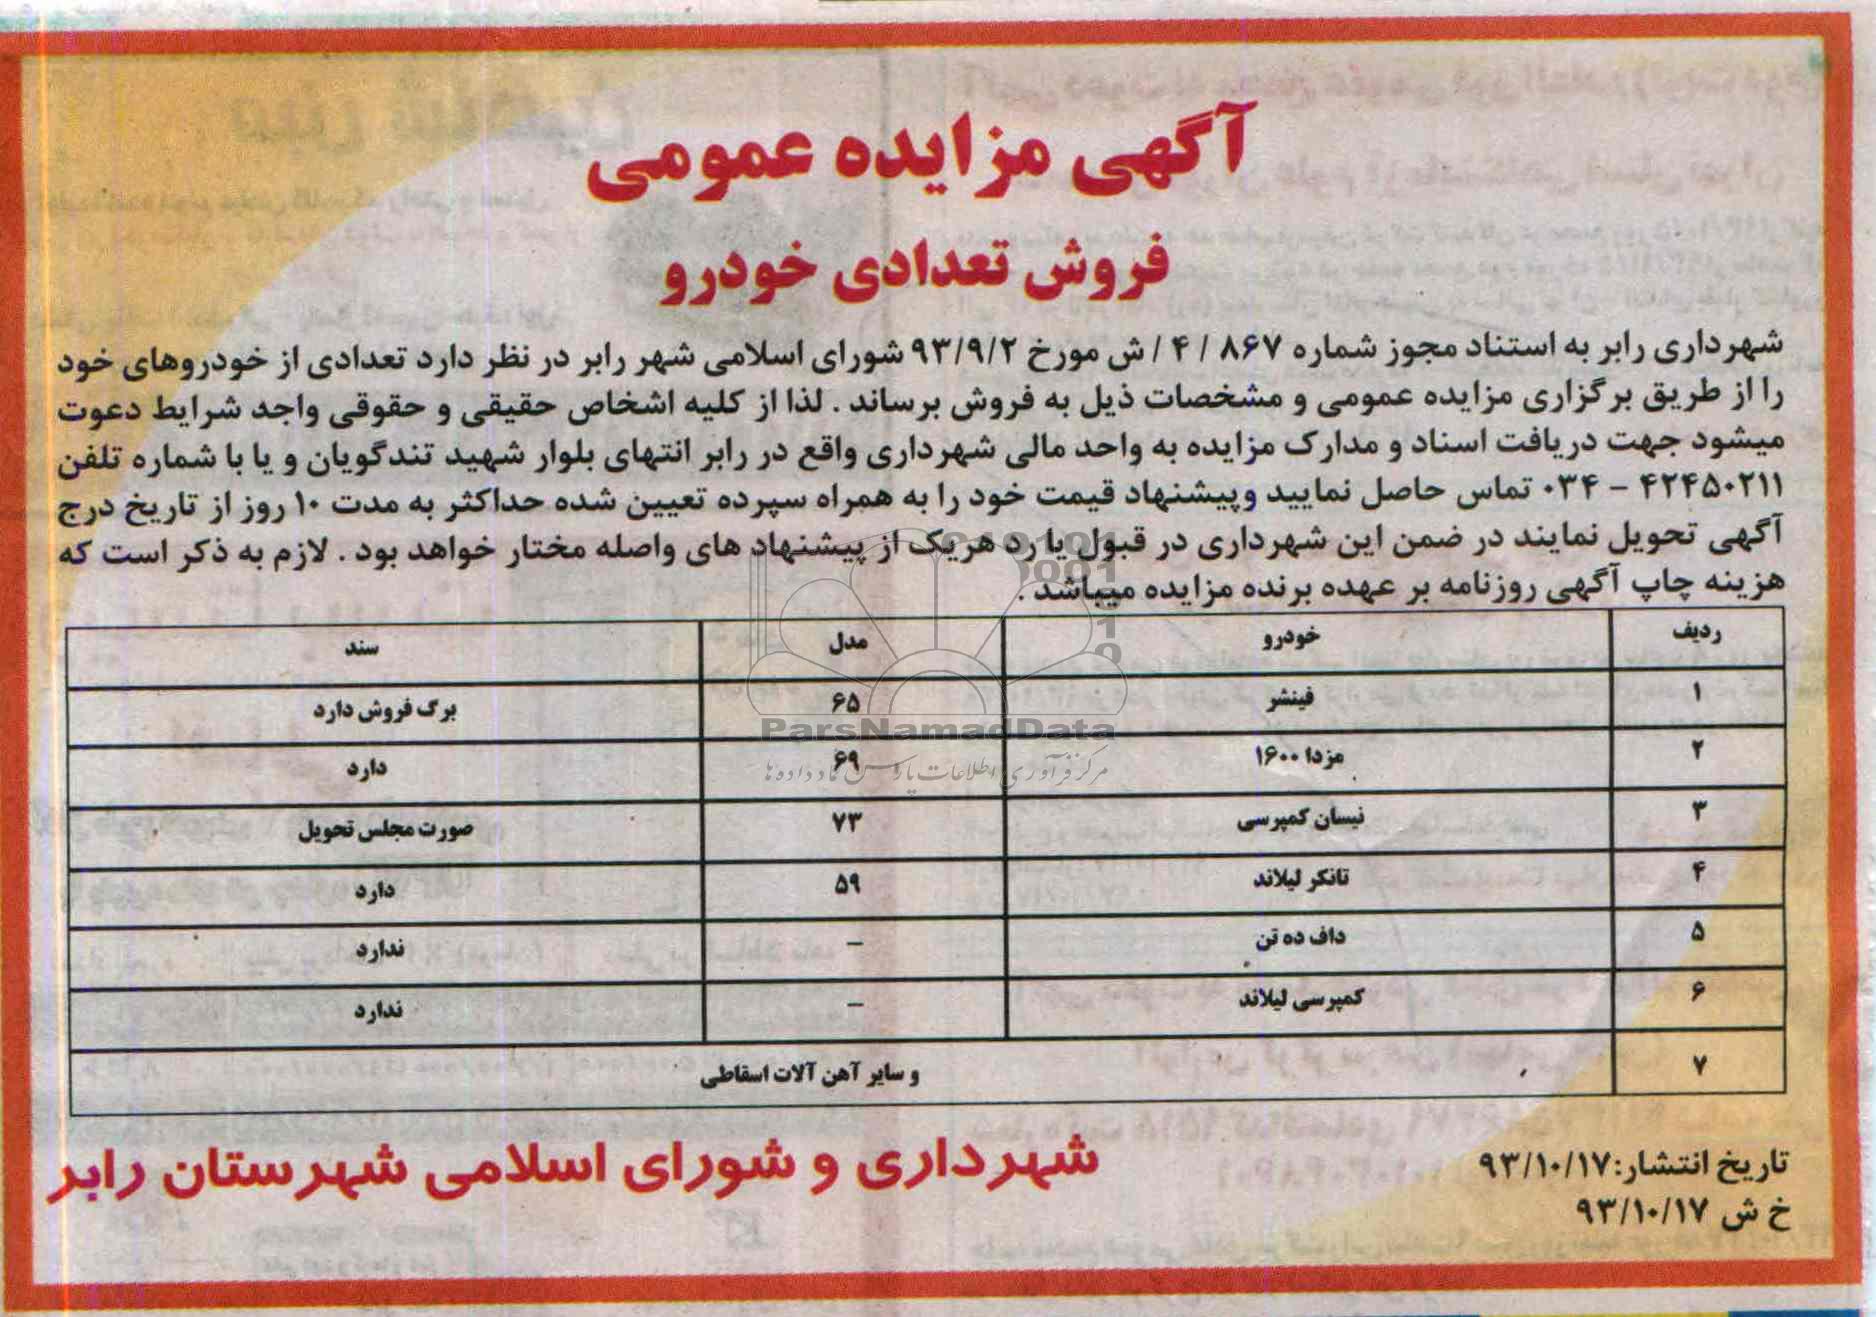 آگهی مزایده عمومی
فروش تعدادی خودرو
شهرداری رابر به استناد مجوز شماره ۸۶۷ / ۴ / ش مورخ ۹۳/۹/۲ شورای اسلامی شهر رابر در نظر دارد تعدادی از خودروهای خود
را از طریق برگزاری مزایده عمومی و مشخصات ذیل به فروش برساند . لذا از کلیه اشخاص حقیقی و حقوقی واجد شرایط دعوت
میشود جهت دریافت اسناد و مدارک مزایده به واحد مالی شهرداری واقع در رابر انتهای بلوار شهید تندگویان و یا با شماره تلفن
۴۲۴۵۰۲۱۱ - ۰۳۴ تماس حاصل نمایید وپیشنهاد قیمت خود را به همراه سپرده تعیین شده حداکثر به مدت ۱۰ روز از تاریخ درج
آگهی تحویل نمایند در ضمن این شهرداری در قبول یا رد هریک از پیشنهاد های واصله مختار خواهد بود . لازم به ذکر است که
هزینه چاپ آگهی روزنامه بر عهده برنده مزایده میباشد .
ردیف خودرو مدل سند
۱ فینشر ۶۵ برگ فروش دارد
۲ مزدا ۱۶۰۰ ۶۹ دارد
۳ نیسان کمپرسی ۷۳ صورت مجلس تحویل
۴ تانکر لیلاند ۵۹ دارد
۵ داف ده تن – ندارد
۶ کمپرسی لیلاند – ندارد
۷ و سایر آهن آلات اسقاطی
ParsNamadData
مرکز فرآوری اطلاعات پارس نماد داده ها
تاریخ انتشار: ۹۳/۱۰/۱۷
خ ش ۹۳/۱۰/۱۷
شهرداری و شورای اسلامی شهرستان رابر